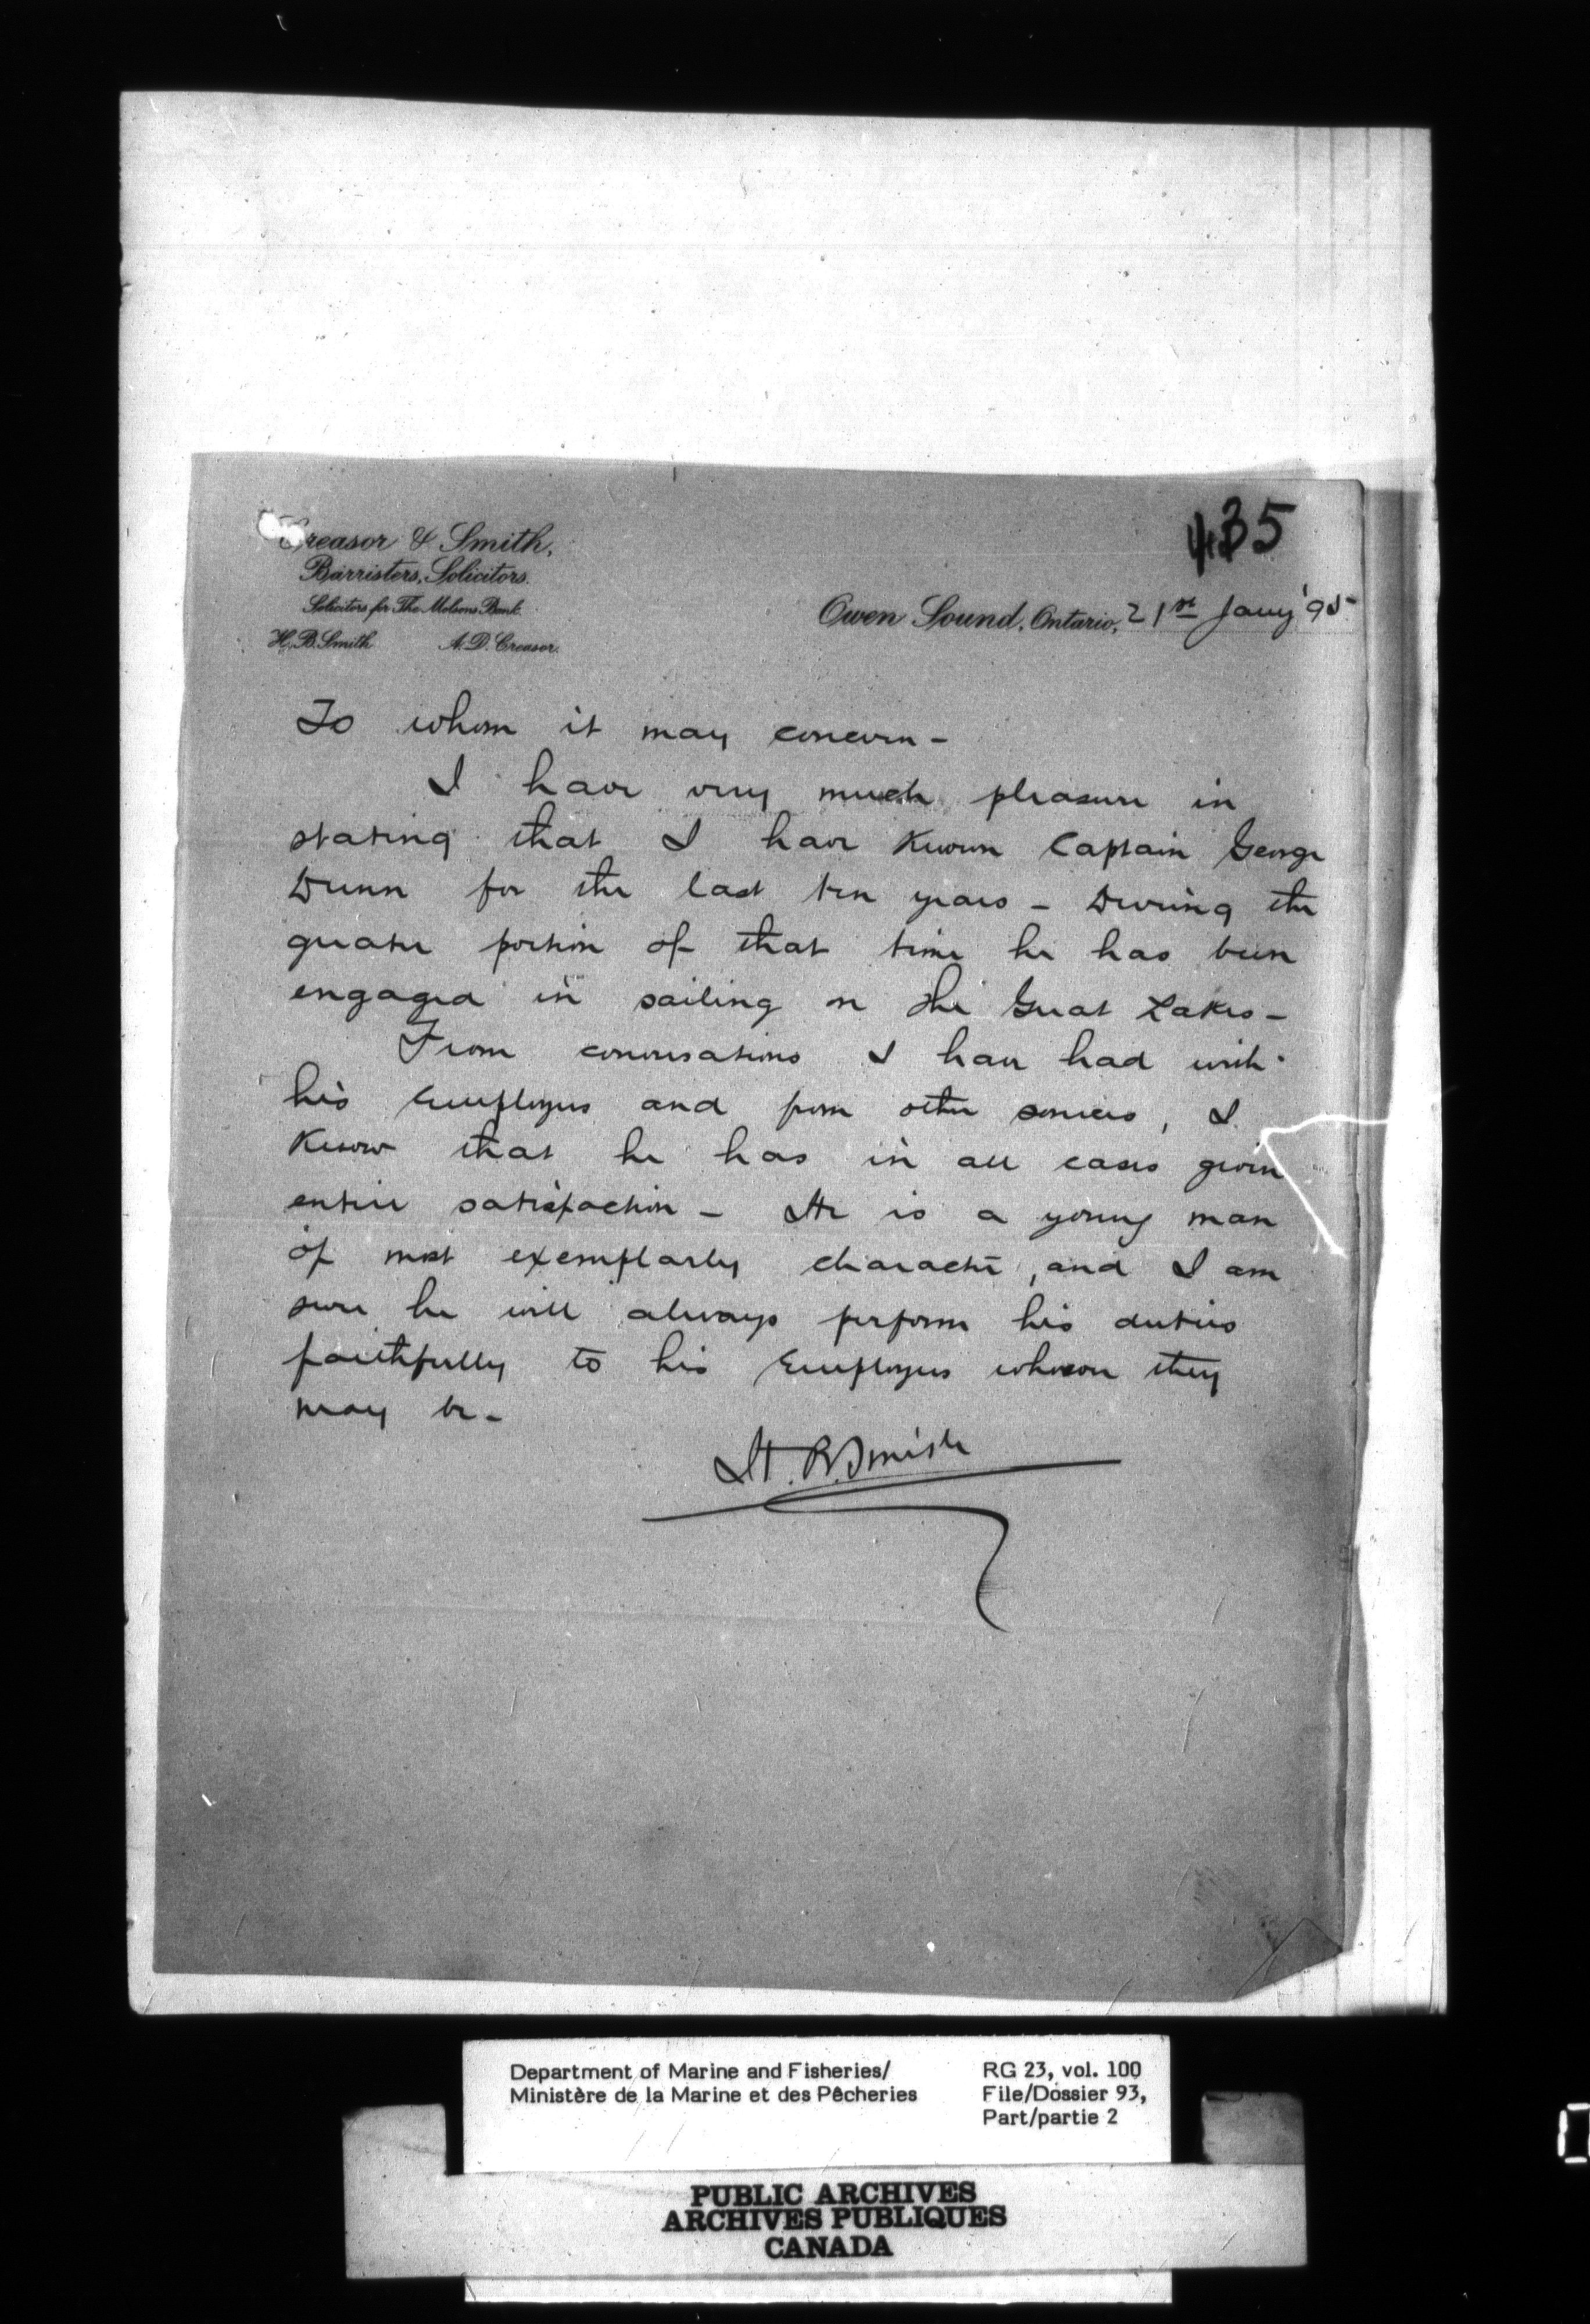 435
Creasor & Smith,
Barristers, Solicitors.
Solicitors for The Molsons Bank.
H. B. Smith A. D. Creasor.
Owen Sound, Ontario, 21st Jany '95
To whom it may concern -
I have very much pleasure in
stating that I have known Captain George
Dunn for the last ten years - During the
greater portion of that time he has been
engaged in sailing on the Great Lakes -
From conversations I have had with
his Employers and from other sources, I
know that he has in all cases given
entire satisfaction - He is a young man
of most exemplarly character, and I am
sure he will always perform his duties
faithfully to his Employers whosoever they
may be -
H. B. Smith
Department of Marine and Fisheries/
Ministère de la Marine et des Pêcheries
RG 23, vol. 100
File/Dossier 93,
Part/partie 2
PUBLIC ARCHIVES
ARCHIVES PUBLIQUES
CANADA